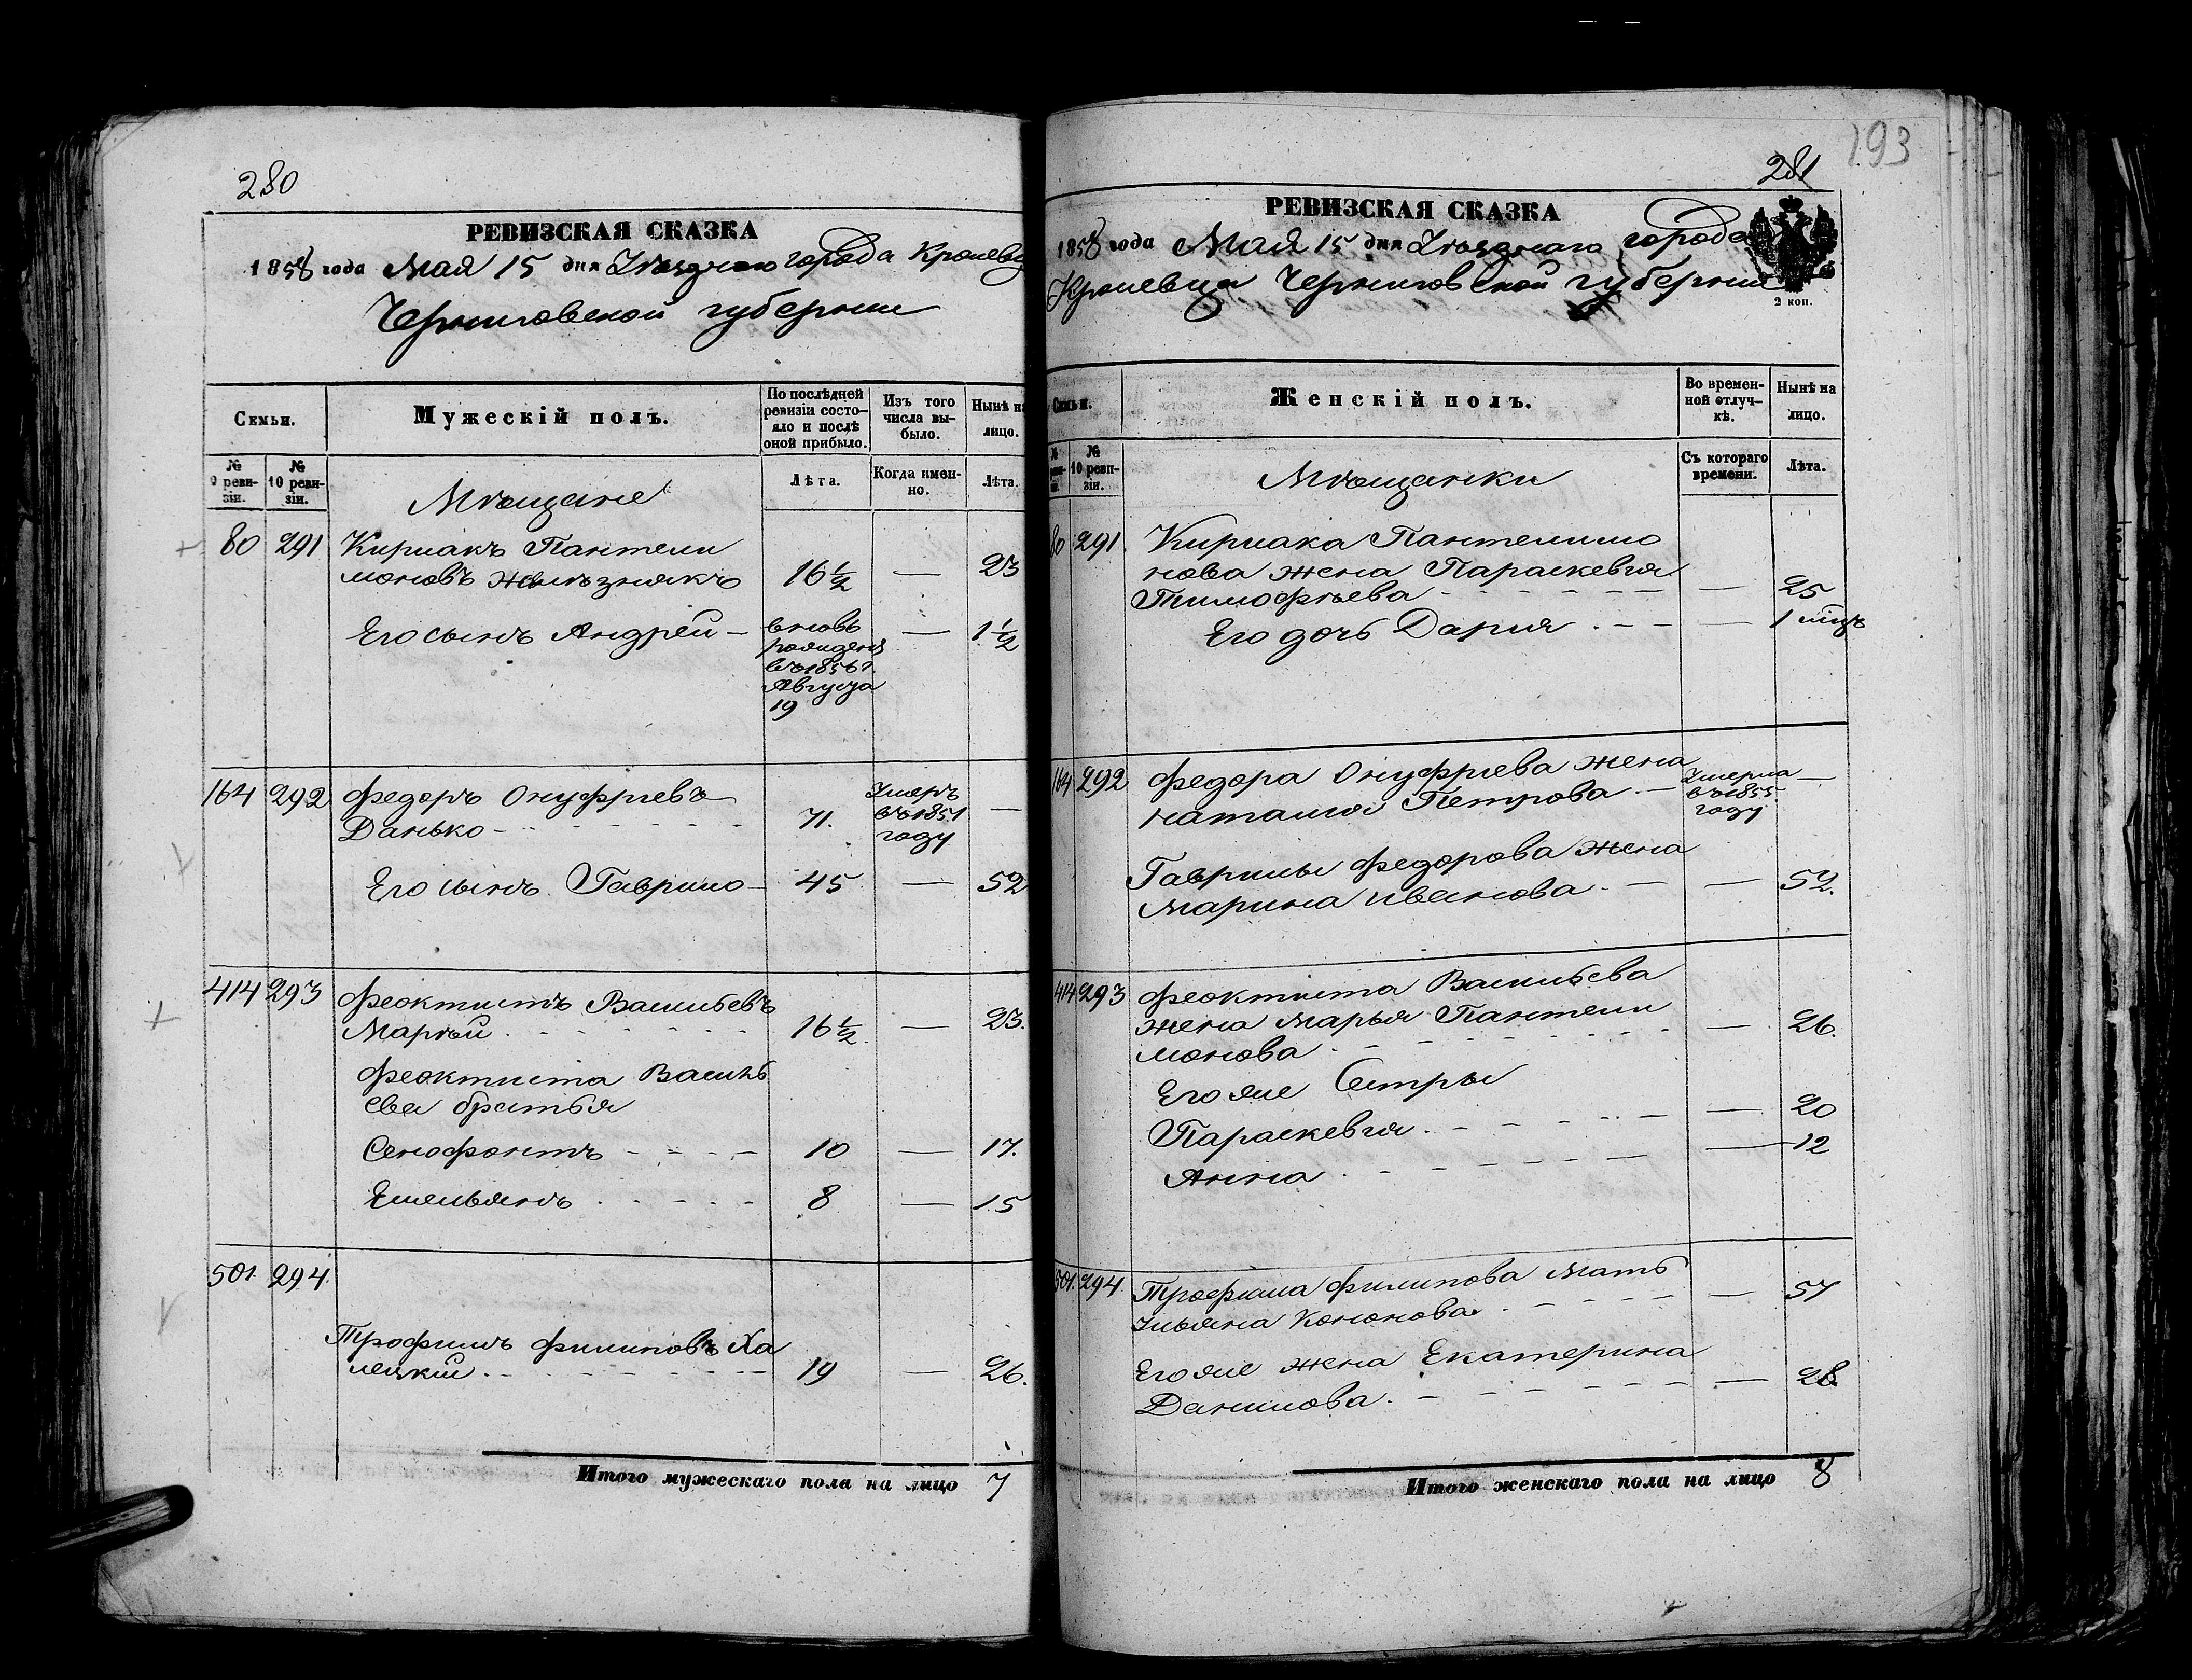 280
РЕВИЗСКАЯ СКАЗКА
1858 года Мая 15 дня Уѣзднаго города Кролевца
Черниговской губернии
Семьи.
Мужескій полъ.
По послѣдней ревизіи состояло и послѣ оной прибыло.
Изъ того числа выбыло.
Нынѣ на лицо.
№ 9 ревизіи.
№ 10 ревизіи.
Мѣщане
Лѣта.
Когда именно.
Лѣта.
80 291 Кириакъ Пантели
моновъ Желѣзнякъ 16½ — 23
Его сынъ Андрей — вновь — 1½
рожденъ
въ 1856 г.
Августа
19
164 292 Федоръ Онуфриевъ
Данько - 71. Умеръ —
въ 1851
году
Его сынъ Гаврило — 45 — 52
414 293 Феоктистъ Васильевъ
Марѣй 16½ — 23.
Феоктиста Василь
ева братья
Сенофонтъ 10 — 17.
Емельянъ 8 — 15
501. 294.
Трофимъ Филиповъ Ха
лецкий 19 — 26.
Итого мужескаго пола на лицо 7
193
281
РЕВИЗСКАЯ СКАЗКА
1858 года Мая 15 дня Уѣзднаго города
Кролевца Черниговской губернии
2 коп.
Семьи.
Женскій полъ.
Во временной отлучкѣ.
Нынѣ на лицо.
№ 10 ревизіи.
Мѣщанки
Съ котораго времени.
Лѣта.
80 291. Кириака Пантелимо
нова жена Параскевия
Тимофѣева — 25
Его дочь Дария — 1 мцъ
164 292 Федора Онуфриева жена Умерла —
Наталия Петрова — въ 1855
году
Гаврилы Федорова жена
Марина Иванова — 52.
414 293 Феоктиста Васильева
жена Марья Пантели
монова — 26.
Его же Сестры
Параскевия — 20
Анна — 12
501. 294. Трофима Филипова Мать
Ульяна Кононова — 57
Его же жена Екатерина
Данилова — 28.
Итого женскаго пола на лицо 8